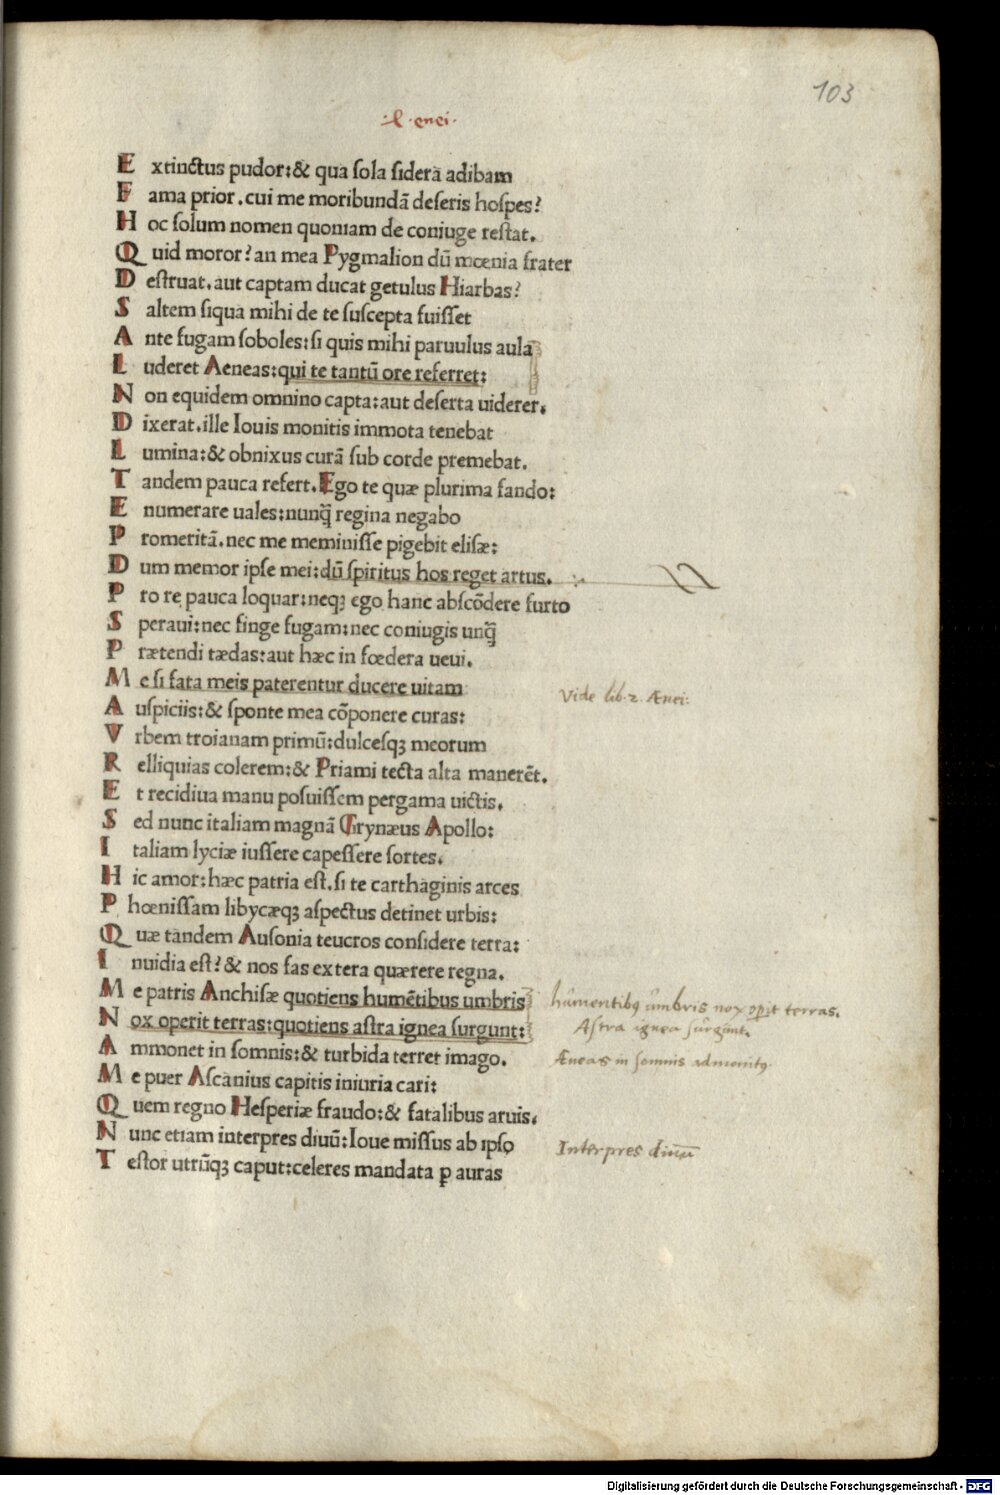 103
.l. enei.
Extinctus pudor: & qua sola sidera adibam
Fama prior. cui me moribundã deseris hospes?
Hoc solum nomen quoniam de coniuge restat.
Quid moror? an mea Pygmalion dũ mœnia frater
Destruat. aut captam ducat getulus Hiarbas?
Saltem siqua mihi de te suscepta fuisset
Ante fugam soboles: si quis mihi paruulus aula
Luderet Aeneas: qui te tantũ ore referret:
Non equidem omnino capta: aut deserta uiderer.
Dixerat. ille Iouis monitis immota tenebat
Lumina: & obnixus curã sub corde premebat.
Tandem pauca refert. Ego te quæ plurima fando:
Enumerare uales: nunq̃ regina negabo
Promeritã. nec me meminisse pigebit elisæ:
Dum memor ipse mei: dũ spiritus hos reget artus.
Pro re pauca loquar: neqȝ ego hanc abscõdere furto
Speraui: nec finge fugam: nec coniugis unq̃
Prætendi tædas: aut hæc in fœdera ueui.
Me si fata meis paterentur ducere uitam
Vide lib. 2. Ænei:
Auspiciis: & sponte mea cõponere curas:
Vrbem troianam primũ: dulcesqȝ meorum
Relliquias colerem: & Priami tecta alta manerẽt.
Et recidiua manu posuissem pergama uictis.
Sed nunc italiam magnã Grynæus Apollo:
Italiam lyciæ iussere capessere sortes.
Hic amor: hæc patria est. si te carthaginis arces
Phœnissam libycæqȝ aspectus detinet urbis:
Quæ tandem Ausonia teucros considere terra:
Inuidia est? & nos fas extera quærere regna.
Me patris Anchisæ quotiens humẽtibus umbris
humentibꝰ umbris nox opit terras.
Nox operit terras: quotiens astra ignea surgunt:
Astra ignea surgunt.
Ammonet in somnis: & turbida terret imago.
Æneas in somnis admonitꝰ
Me puer Ascanius capitis iniuria cari:
Quem regno Hesperiæ fraudo: & fatalibus aruis.
Nunc etiam interpres diuũ: Ioue missus ab ipso
Interpres diuũ
Testor utrũqȝ caput: celeres mandata ꝑ auras
Digitalisierung gefördert durch die Deutsche Forschungsgemeinschaft - DFG